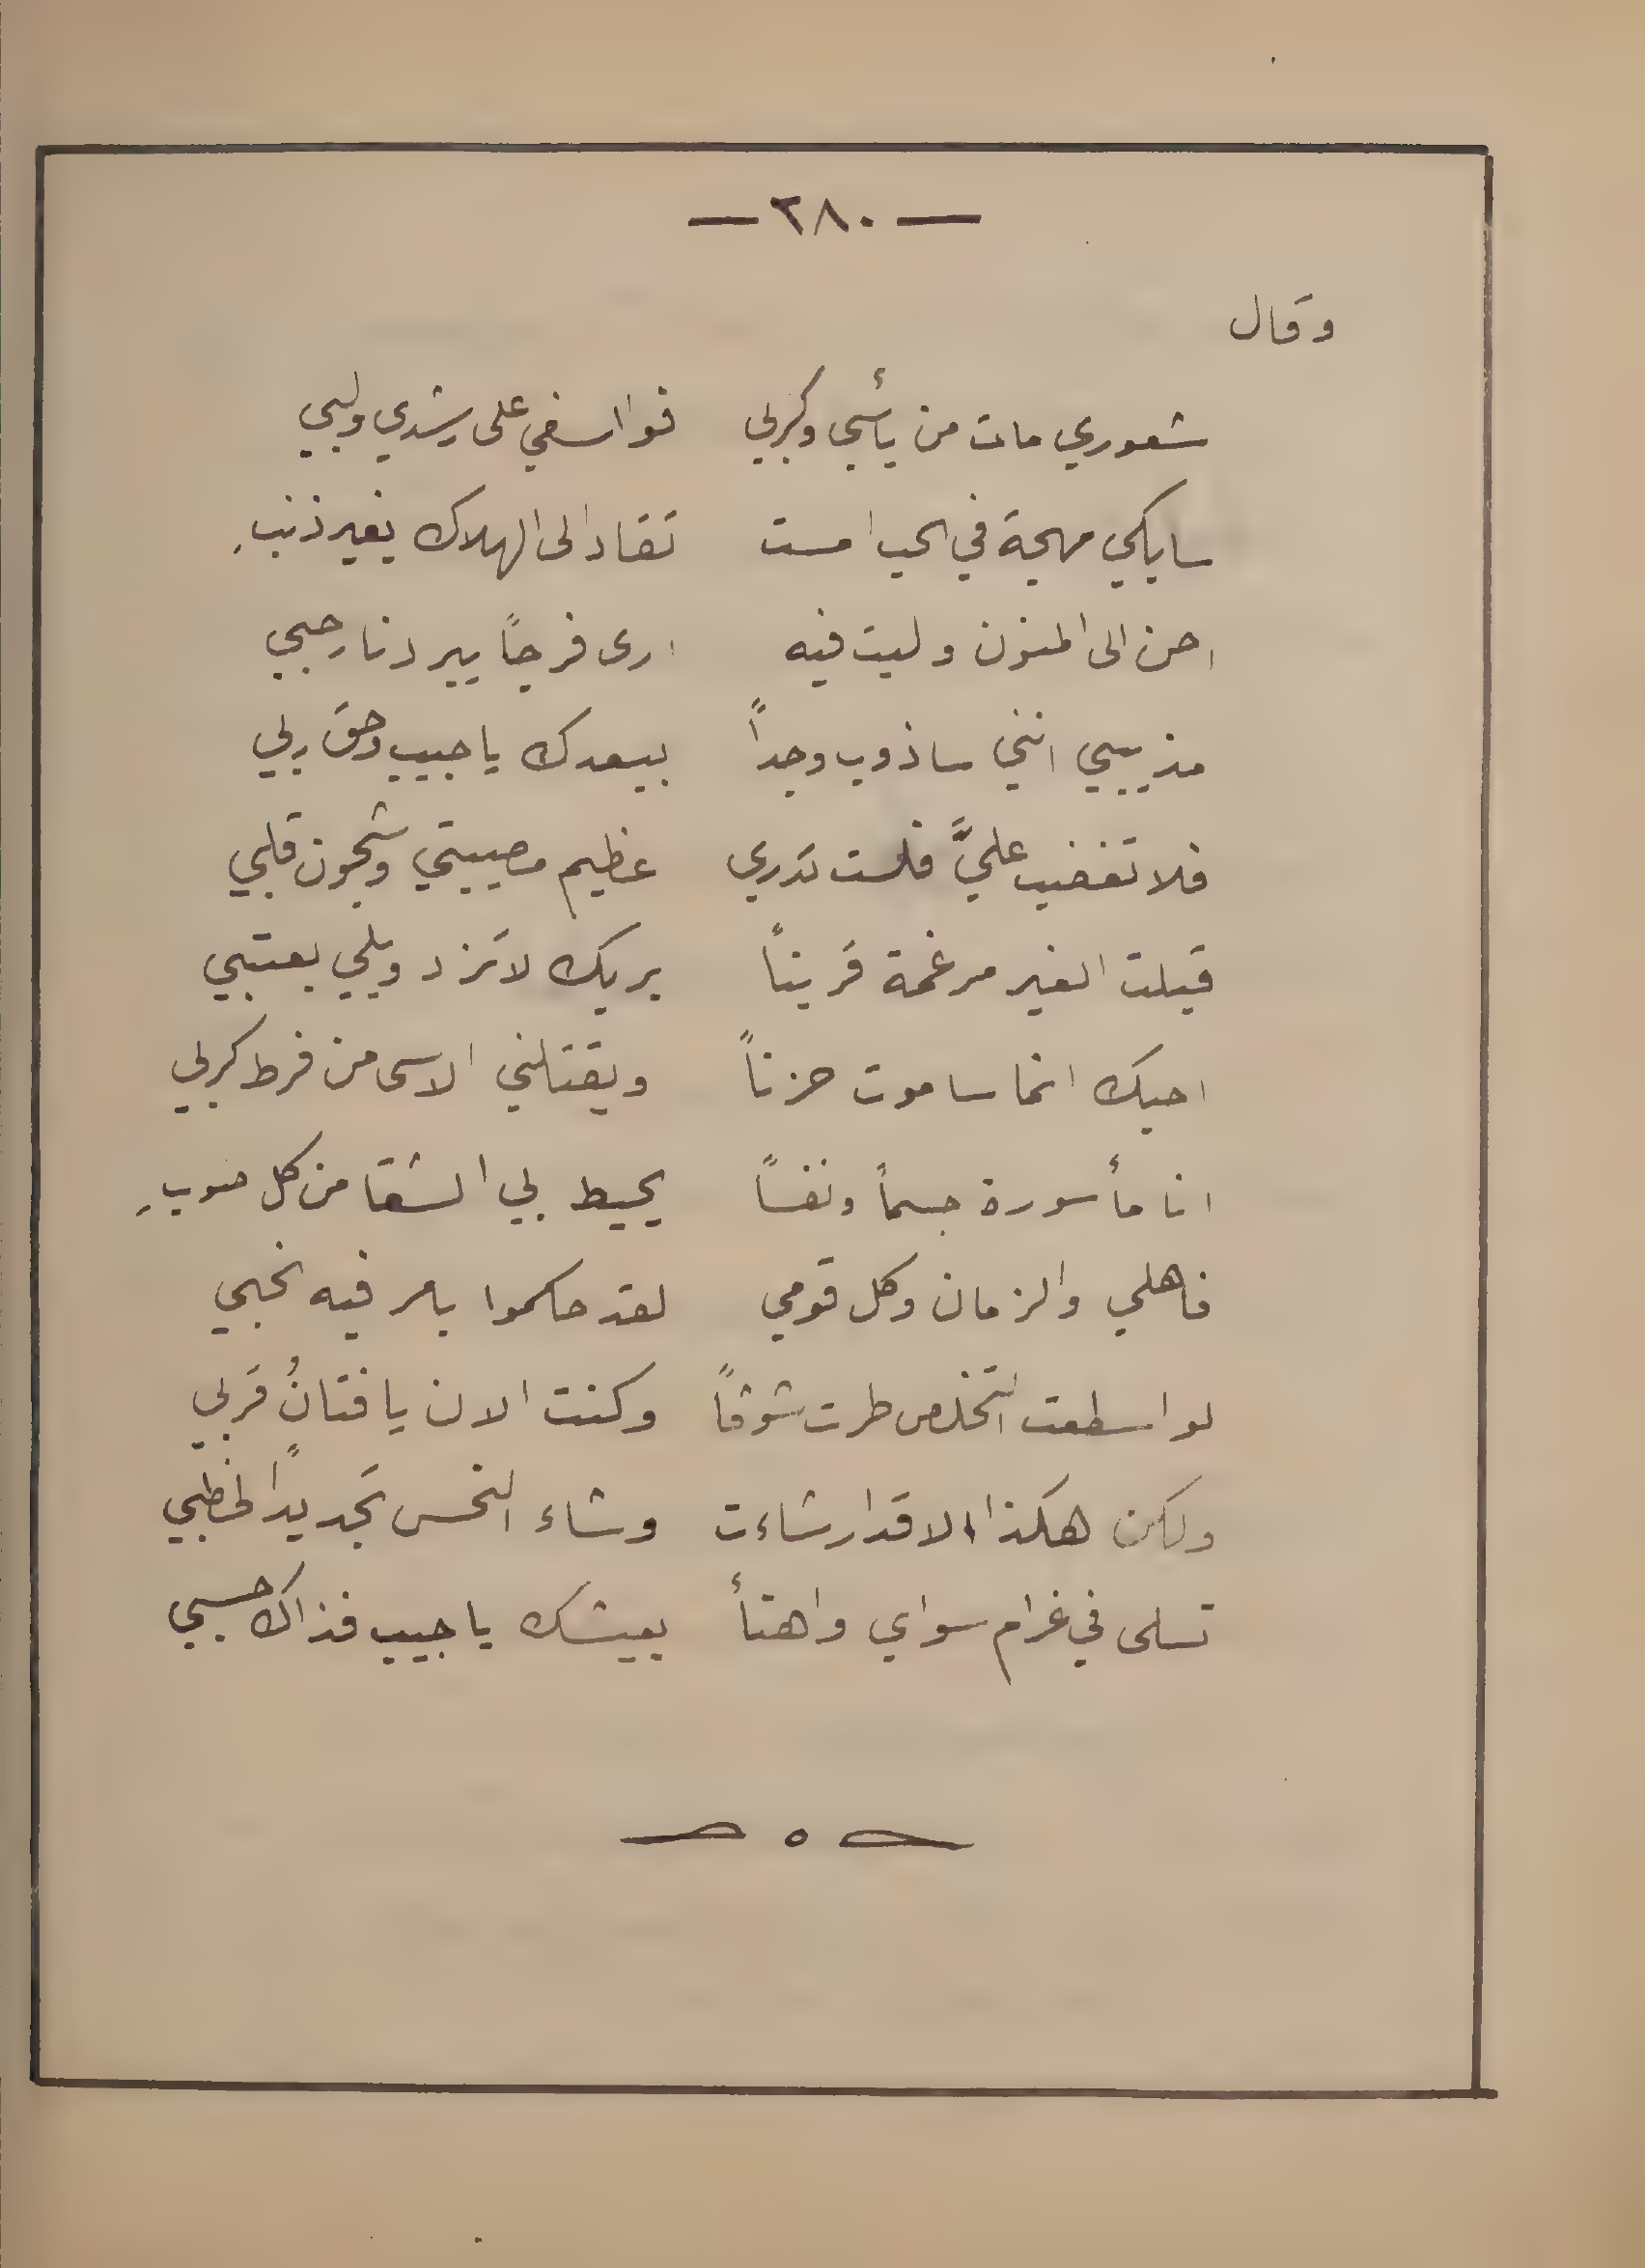 — ٢٨٠ —
وقال
شعوري مات من يأسي وكربي فوا اسفي على رشدي ولبي
سابكي مهجة في الحب امست تقاد الى الهلاك بغير ذنبِ
احن الى المنون وليت فيه ارى فرجاً يبرد نار حبي
مذيبي انني ساذوب وجداً ببعدك يا حبيب وحق ربي
فلا تغضب عليَّ فلست تدري عظيم مصيبتي وشجون قلبي
قبلت الغير مرغمة قريناً بربك لا تزد ويلي بعتبي
احبك انما ساموت حزناً ويقتلني الاسى من فرط كربي
انا مأسورة جسماً ونفساً يحيط بي الشقا من كل صوبِ
فاهلي والزمان وكل قومي لقد حكموا بامر فيه نحبي
لو اسطعت التخلص طرت شوقاً وكنت الان يا فتانُ قربي
ولكن هكذا الاقدار شاءت وشاء النحس تجديداً لخطبي
تسلى في غرام سواي واهنأ بعيشك يا حبيب فذاك حسبي